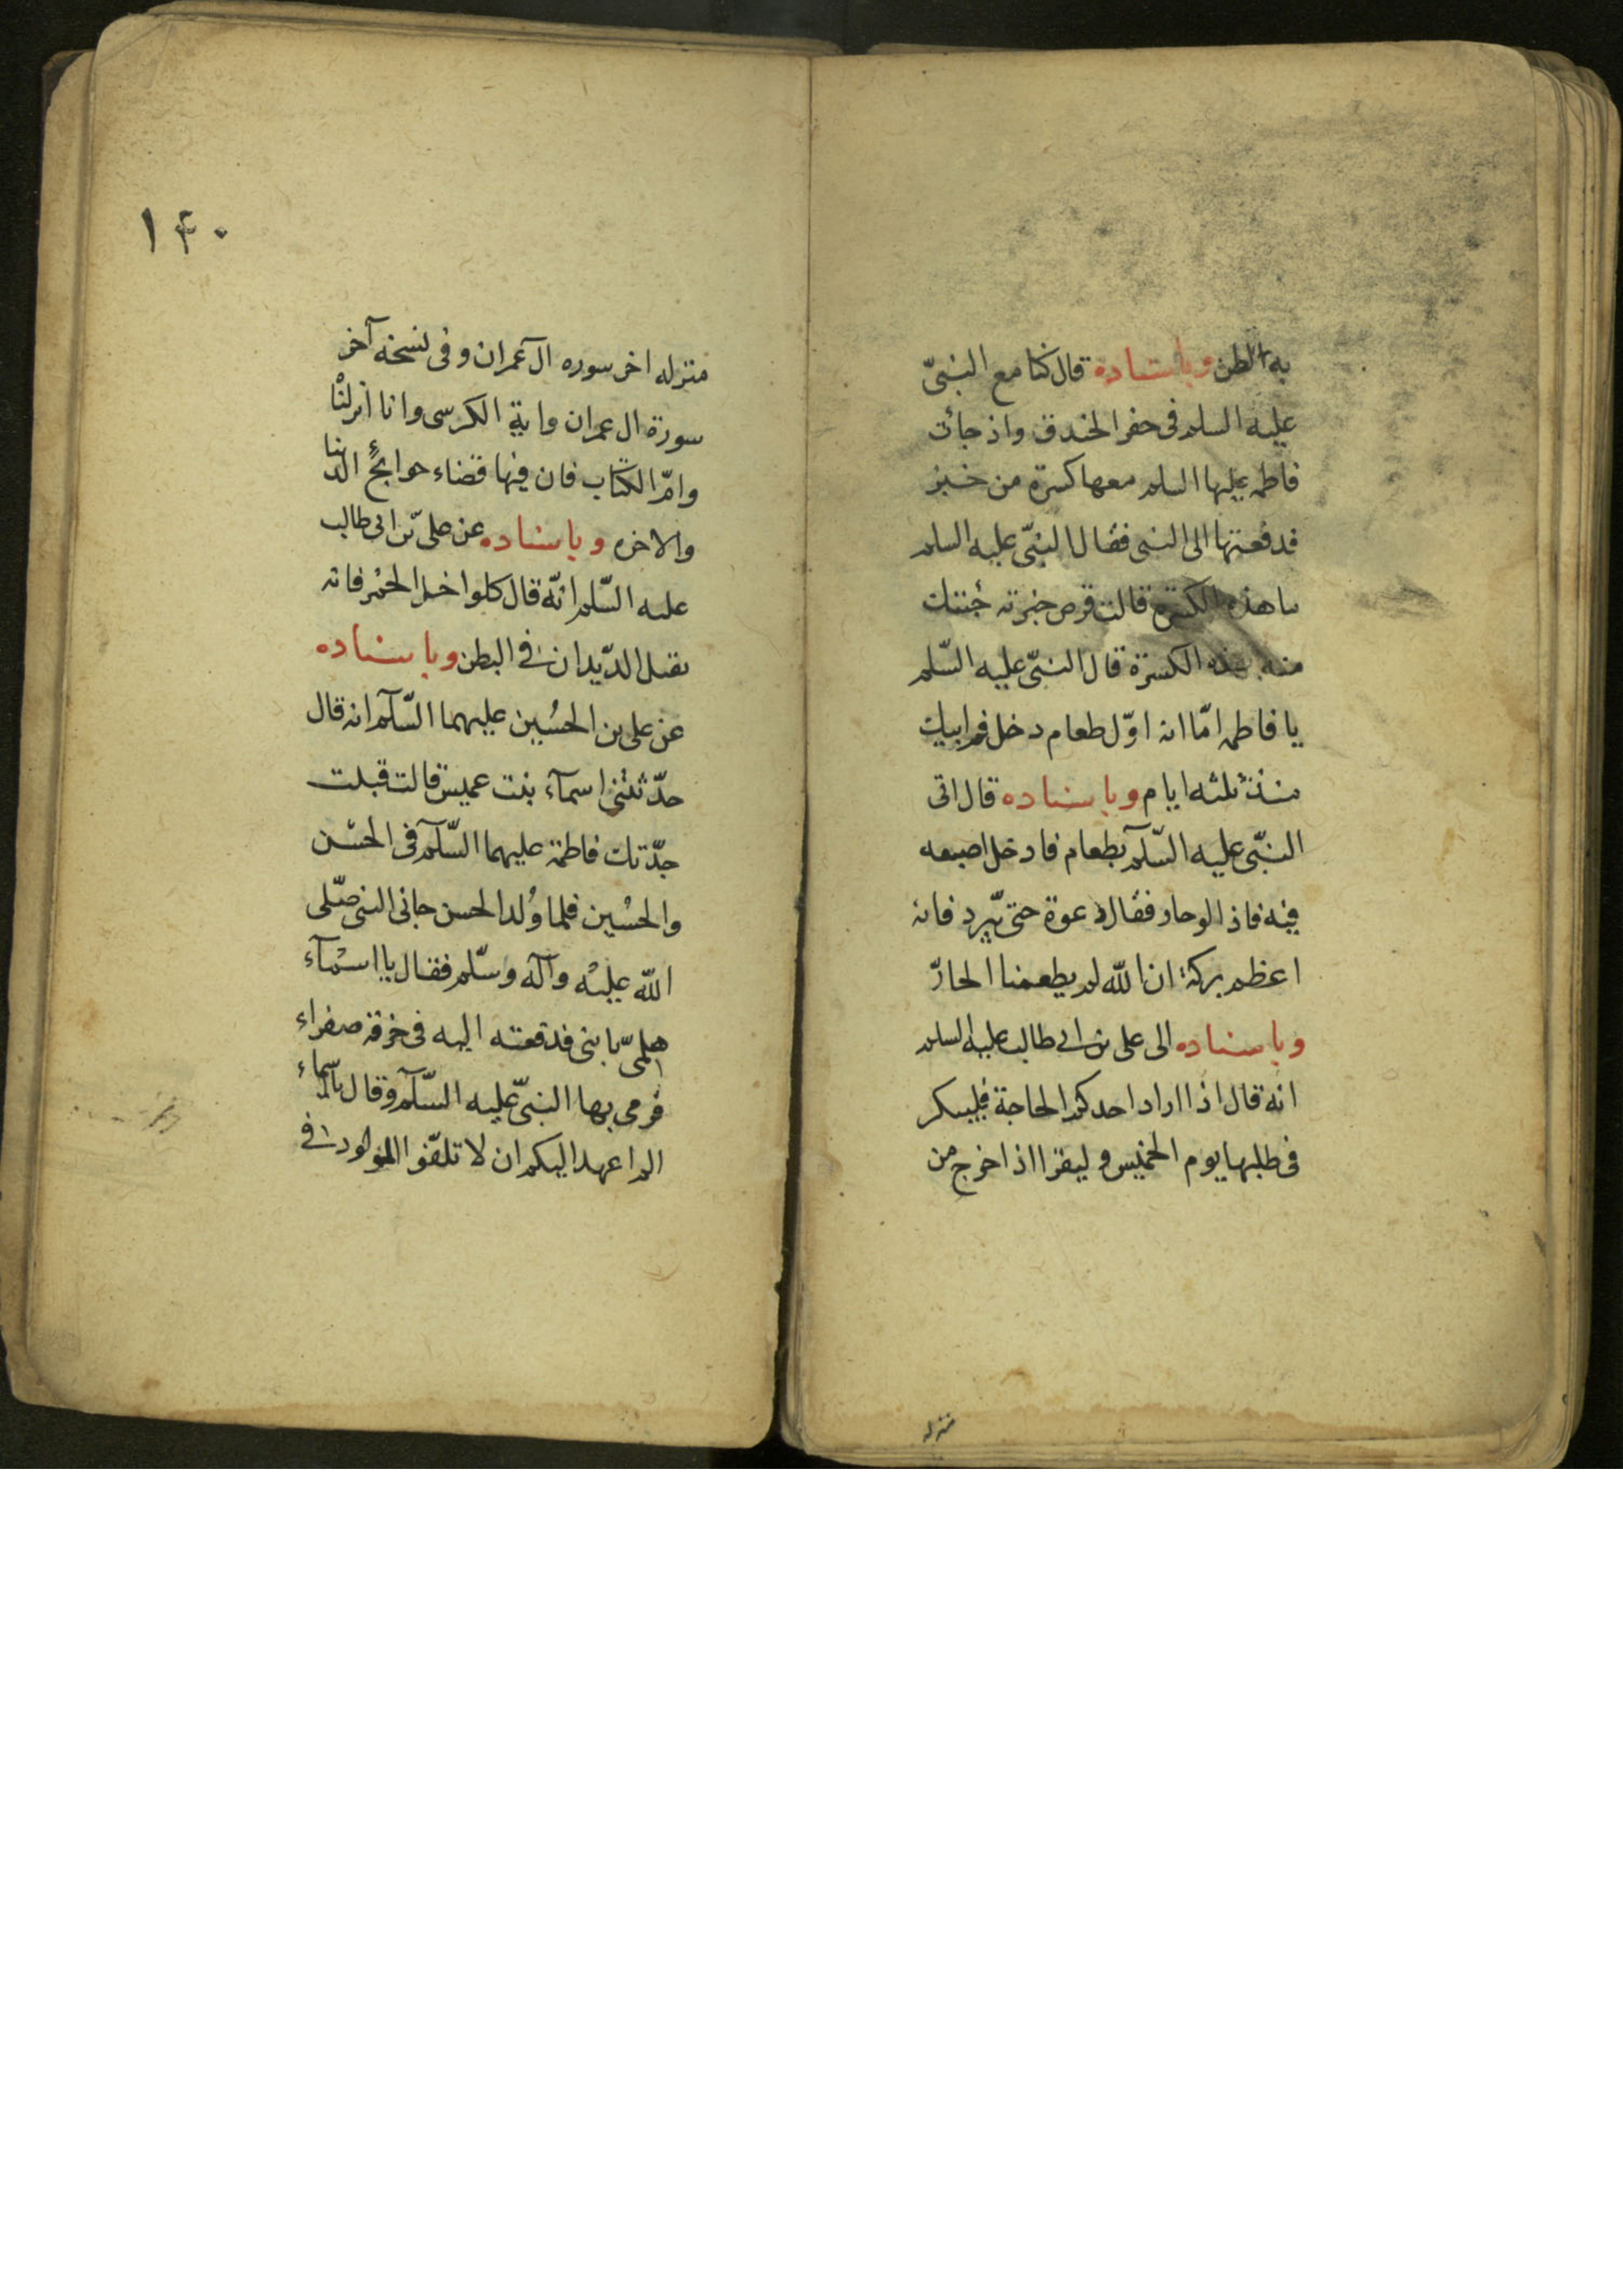 به الظن وباسناده قال كنا مع النبىّ
عليه السلم فى حفر الخندق واذ جائت
فاطمه عليها السلم معها كسرة من خبز
فدفعتها الى النبى فقال النبىّ عليه السلم
ما هذه الكسرة قالت قرص خبزته جئتك
منه بهذه الكسرة قال النبىّ عليه السّلم
يا فاطمه امّا انه اوّل طعام دخل فم ابيك
منذ ثلثه ايام وباسناده قال اتى
النبّى عليه السّلآم بطعام فادخل اصبعه
فيه فاذا هو حار فقال دعوة حتى يّبرد فانه
اعظم بركة ان الله لم يطعمنا الحارّ
وباسناده الى على بن ابى طالب عليه السلم
انه قال اذا اراد احدكم الحاجة فليبكر
فى طلبها يوم الخميس وليقرا اذا خرج من
منزله
١۴٠
منزله اخر سوره ال عمران وفى نسخه آخر
سورة ال عمران واية الكرسى وانا انزلنا
وامّ الكتاب فان فيها قضاء حوائج الدنيا
والاخره وباسناده عن على بن ابى طالب
عليه السّلم انّه قال كلوا خل الخمر فانه
يقتل الدّيدان فى البطن وباسناده
عن على بن الحسُين عليهما السّلآم انه قال
حدّثتنى اسمآء بنت عميس قالت قبلت
جدّتك فاطمة عليهما السّلآم فى الحسْن
والحسُين فلما وُلد الحسن جانى النبى صّلى
الله عليْه وآله وسّلم فقال يا اسْمآء
هلمىّ بابنى فدفعته اليه فى خرقه صفراء
فرمى بها النبىّ عليه السّلآم وقال ياسماء
الم اعهد اليكم ان لا تلفّوا المولود فى